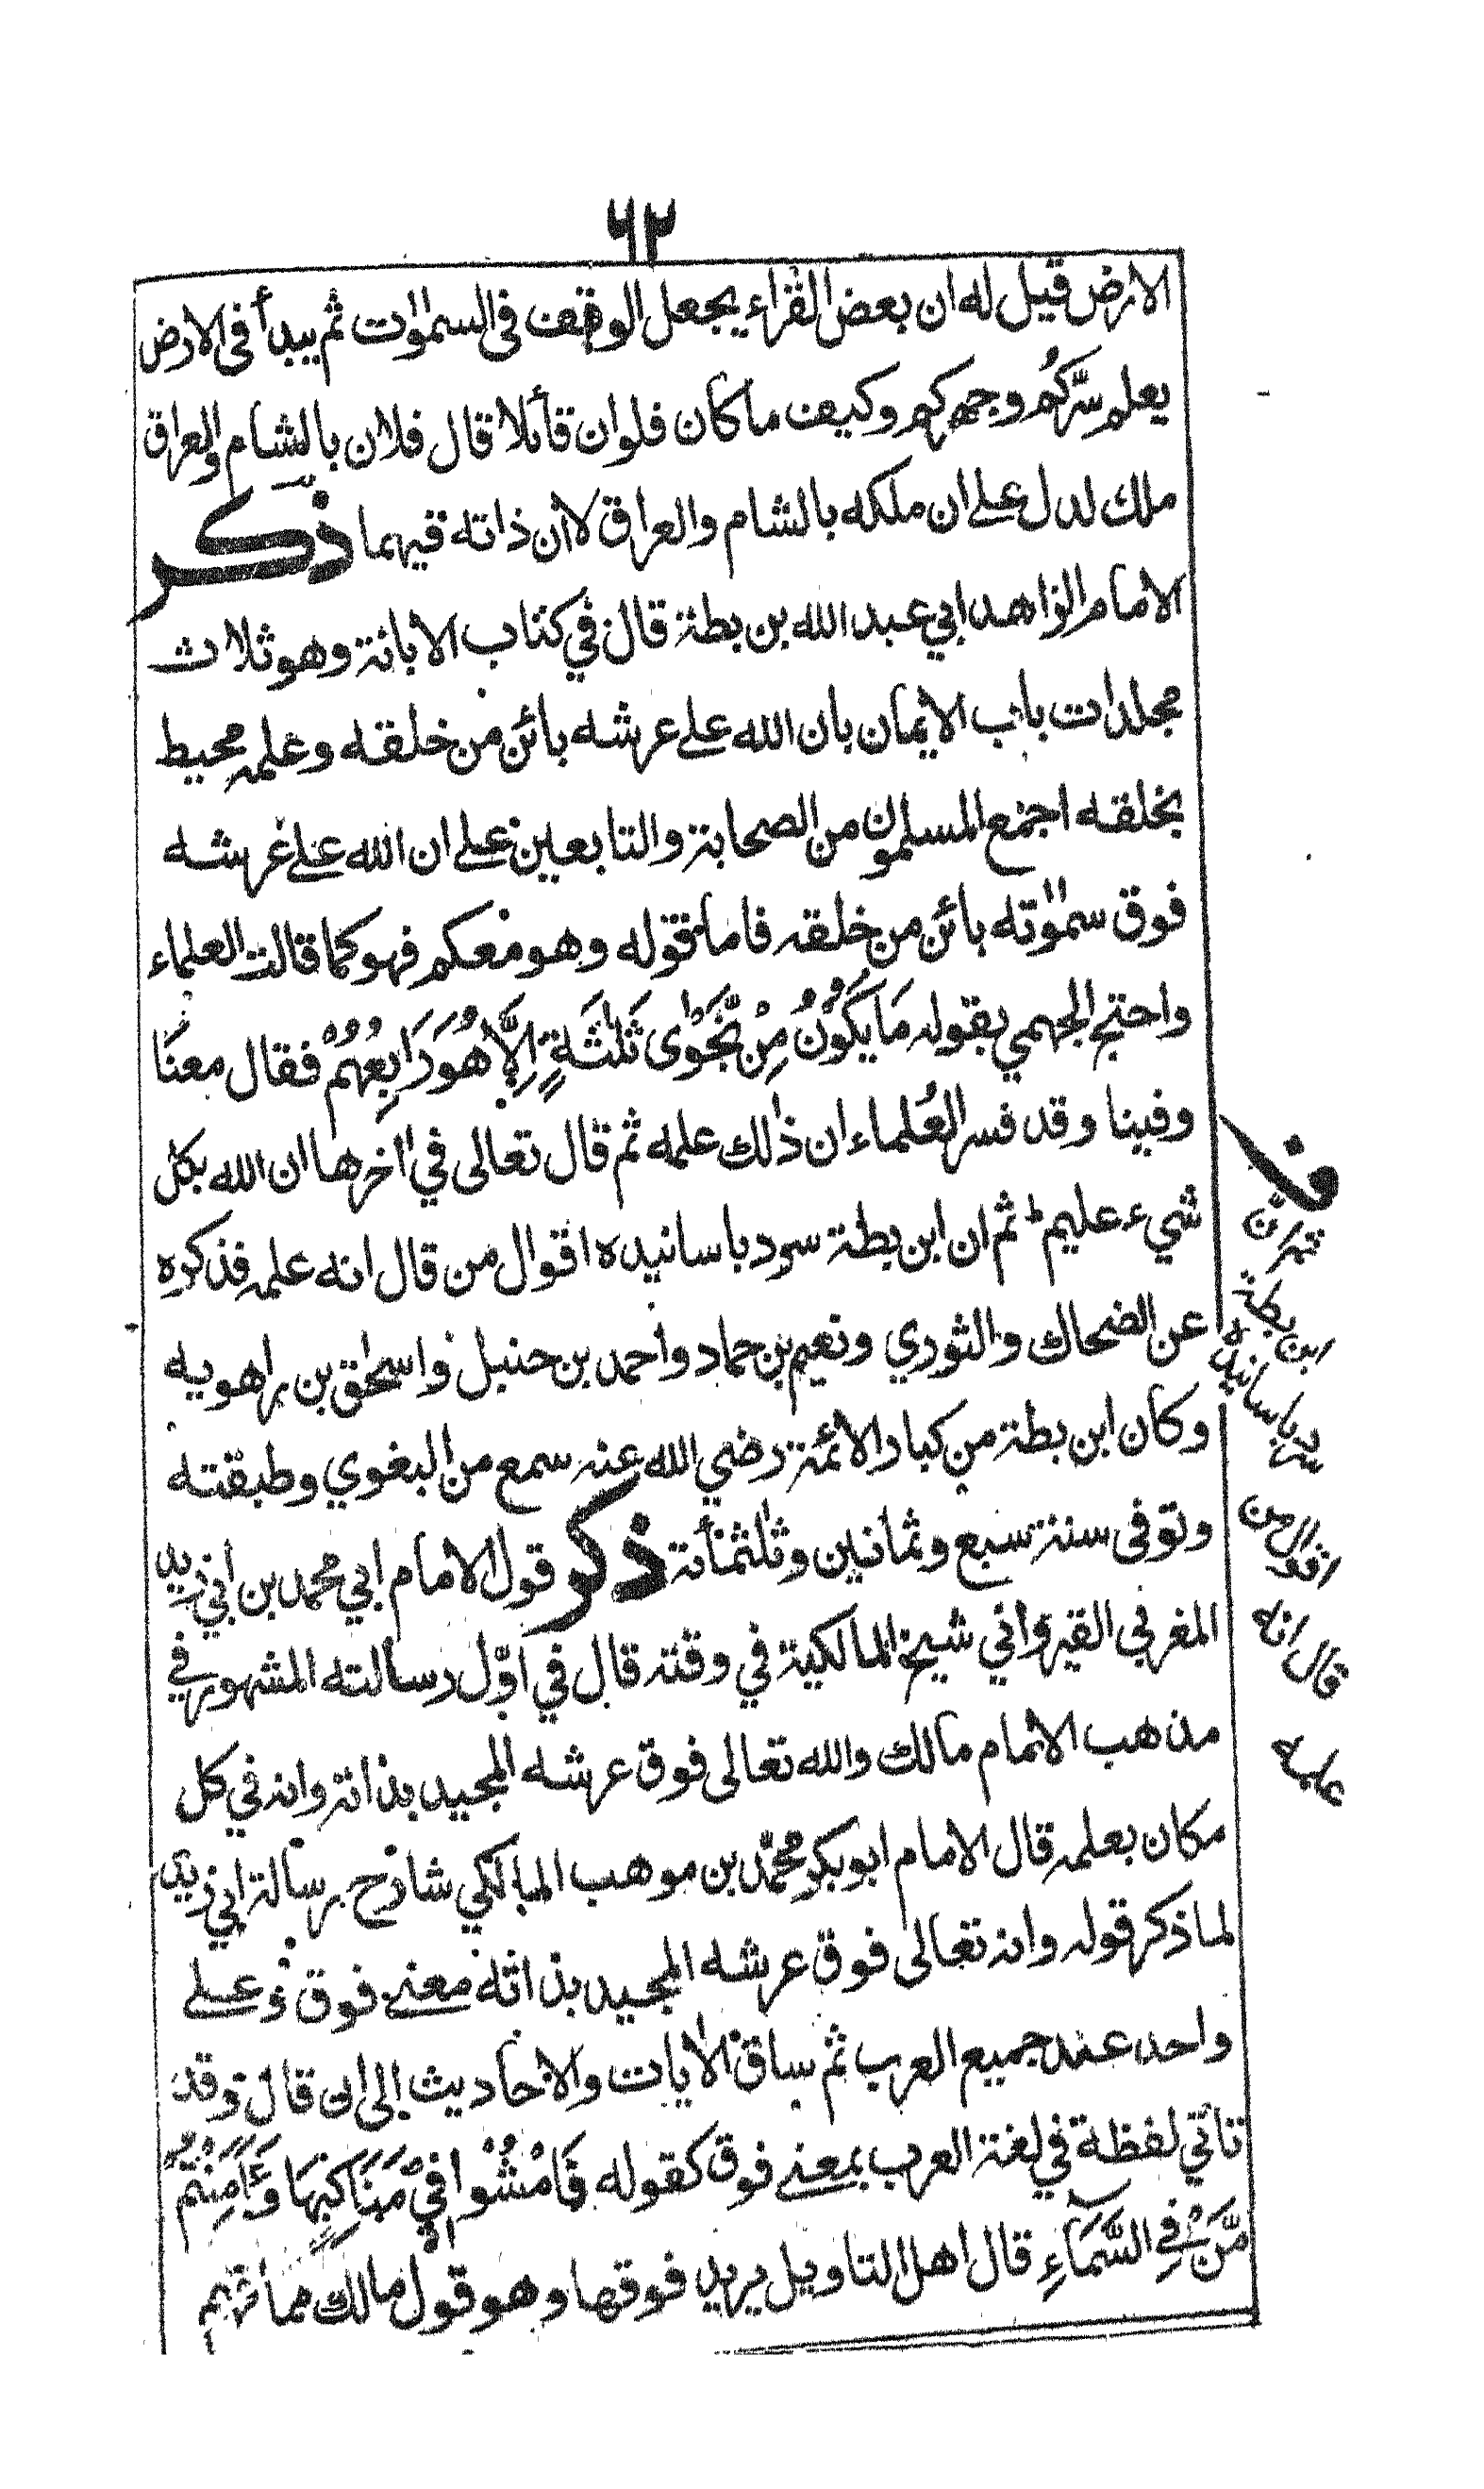 ٦٢
الارض قيل له ان بعض القراء يجعل الوقف فى السمٰوٰت ثم يبدأ فى الارض
يعلم سرَّكُم وجهركم وكيف ما كان فلو ان قائلا قال فلان بالشام والعراق
ملك لدل على ان ملكه بالشام والعراق لا ان ذاته فيهما ذكر
الامام الزاهد ابي عبد الله بن بطة قال في كتاب الابانة وهو ثلاث
مجلدات باب الايمان بان الله على عرشه بائن من خلقه وعلمه محيط
بخلقه اجمع المسلمون من الصحابة والتابعين على ان الله على عرشه
فوق سمٰوٰته بائن من خلقه فاما قوله وهو معكم فهو كما قالت العلماء
واحتج الجهمي بقوله مَا يَكُوْنُ مِنْ نَّجْوٰى ثَلٰثَةٍ اِلَّا هُوَ رَابِعُهُمْ فقال معنا
وفينا وقد فسر العُلماء ان ذٰلك علمه ثم قال تعالى في اٰخرها ان الله بكل
شيء عليم ط ثم ان ابن بطة سرد باسانيده اقوال من قال انه علمه فذكره
عن الضحاك والثوري ونعيم بن حماد واحمد بن حنبل واسحٰق بن راهويه
وكان ابن بطة من كبار الائمة رضي الله عنه سمع من البغوي وطبقته
وتوفى سنة سبع وثمانين وثلٰثمائة ذكر قول الامام ابي محمد بن ابي زيد
المغربي القيرواني شيخ المالكية في وقته قال في اوّل رسالته المشهور في
مذهب الامام مالك والله تعالى فوق عرشه المجيد بذاته وانه في كل
مكان بعلمه قال الامام ابو بكر محمّد بن موهب المالكي شارح رسالة ابي زيد
لما ذكر قوله وانه تعالى فوق عرشه المجيد بذاته معنى فوق وعلى
واحد عند جميع العرب ثم ساق الاٰيات والاحاديث الى ان قال وقد
تاتي لفظة في لغة العرب بمعنى فوق كقوله فَامْشُوْا فِيْ مَنَاكِبِهَا وَءَاَمِنْتُمْ
مَّنْ فِي السَّمَاءِ قال اهل التاويل يريد فوقها وهو قول مالك مما فهم
ف
ثم ان
ابن بطة
سرد باسانيده
اقوال من
قال انه
علمه